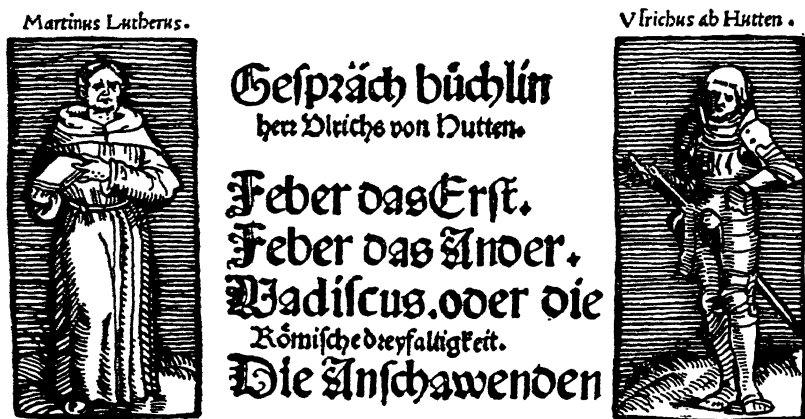 Martinus Lutherus.
Vlrichus ab Hutten.
Geſpräch büchlin
herr Vlrichs von Hutten.
Feber das Erſt.
Feber das Ander.
Vadiſcus. oder die
Römiſche dreyfaltigkeit.
Die Anſchawenden